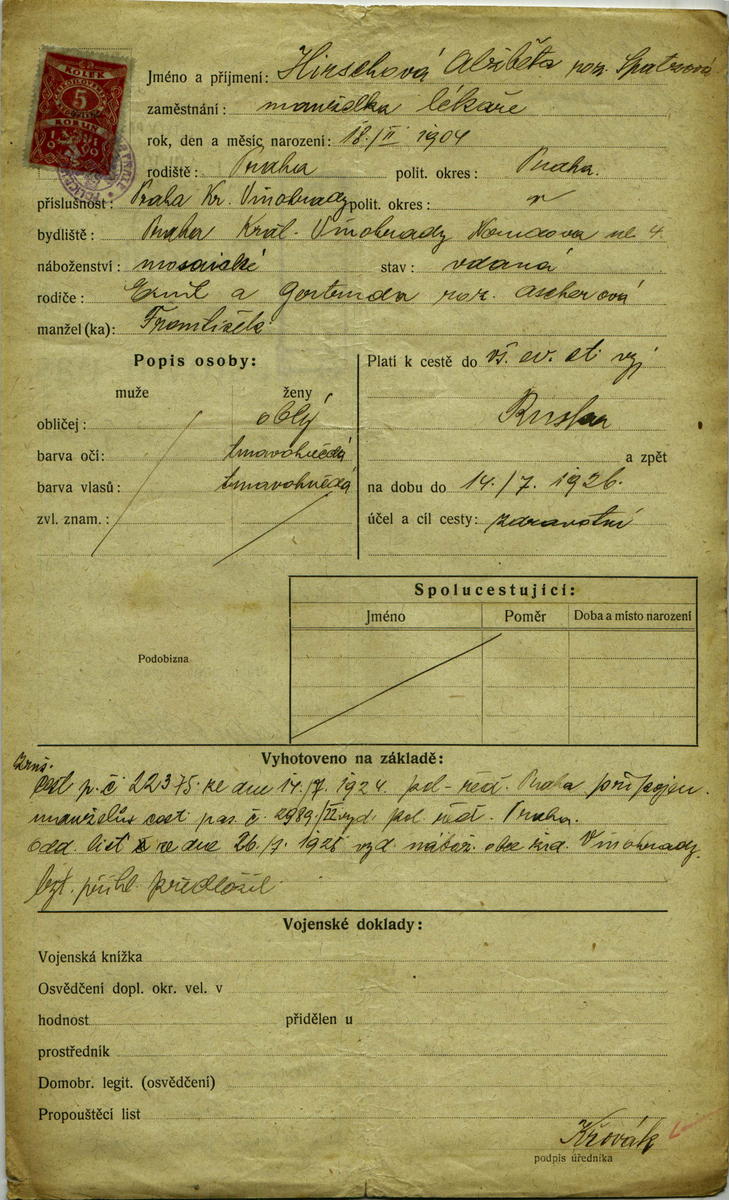 KOLEK
5
KORUN
1919
Jméno a příjmení: Hirschová Alžběta roz. Spatzová
zaměstnání: manželka lékaře
rok, den a měsíc narození: 18./II 1904
rodiště: Praha polit. okres: Praha.
příslušnost: Praha Kr. Vinohrady polit. okres: "
bydliště: Praha Král. Vinohrady
náboženství: mosaické stav: vdaná
rodiče: Emil a Gertruda roz. Ascherová
manžel (ka): František
Popis osoby: Platí k cestě do vš. ev. st. vyj
muže ženy
obličej: oblý
Ruska
barva očí: tmavohnědá a zpět
barva vlasů: tmavohnědá na dobu do 14./7. 1926.
zvl. znam.: účel a cíl cesty: zdravotní
Spolucestující:
Jméno Poměr Doba a místo narození
Podobizna
Vyhotoveno na základě:
cest p. č. 22375 ze dne 14./7. 1924 pol. řed. Praha
manželův cest pas. č. 2989/III vyd. pol. řed. Praha.
odd. list ze dne 26./7. 1925 vyd. nábož. obe žid. Vinohrady.
byt. přihl. předložil
Vojenské doklady:
Vojenská knížka
Osvědčení dopl. okr. vel. v
hodnost přidělen u
prostředník
Domobr. legit. (osvědčení)
Propouštěcí list
Křovák
podpis úředníka